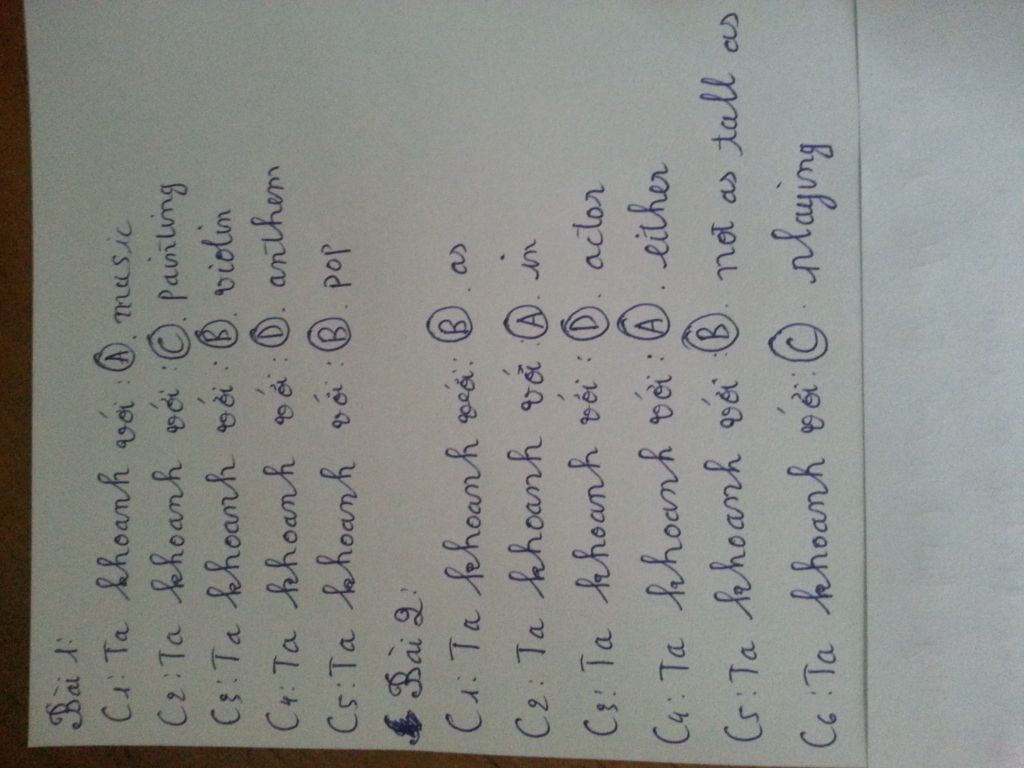 Bài 1:
C1: Ta khoanh với: A. music
C2: Ta khoanh với: C. painting
C3: Ta khoanh với: B. violin
C4: Ta khoanh với: D. anthem
C5: Ta khoanh với: B. pop
Bài 2:
C1: Ta khoanh với: B. as
C2: Ta khoanh với: A. in
C3: Ta khoanh với: D. actor
C4: Ta khoanh với: A. either
C5: Ta khoanh với: B. not as tall as
C6: Ta khoanh với: C. playing